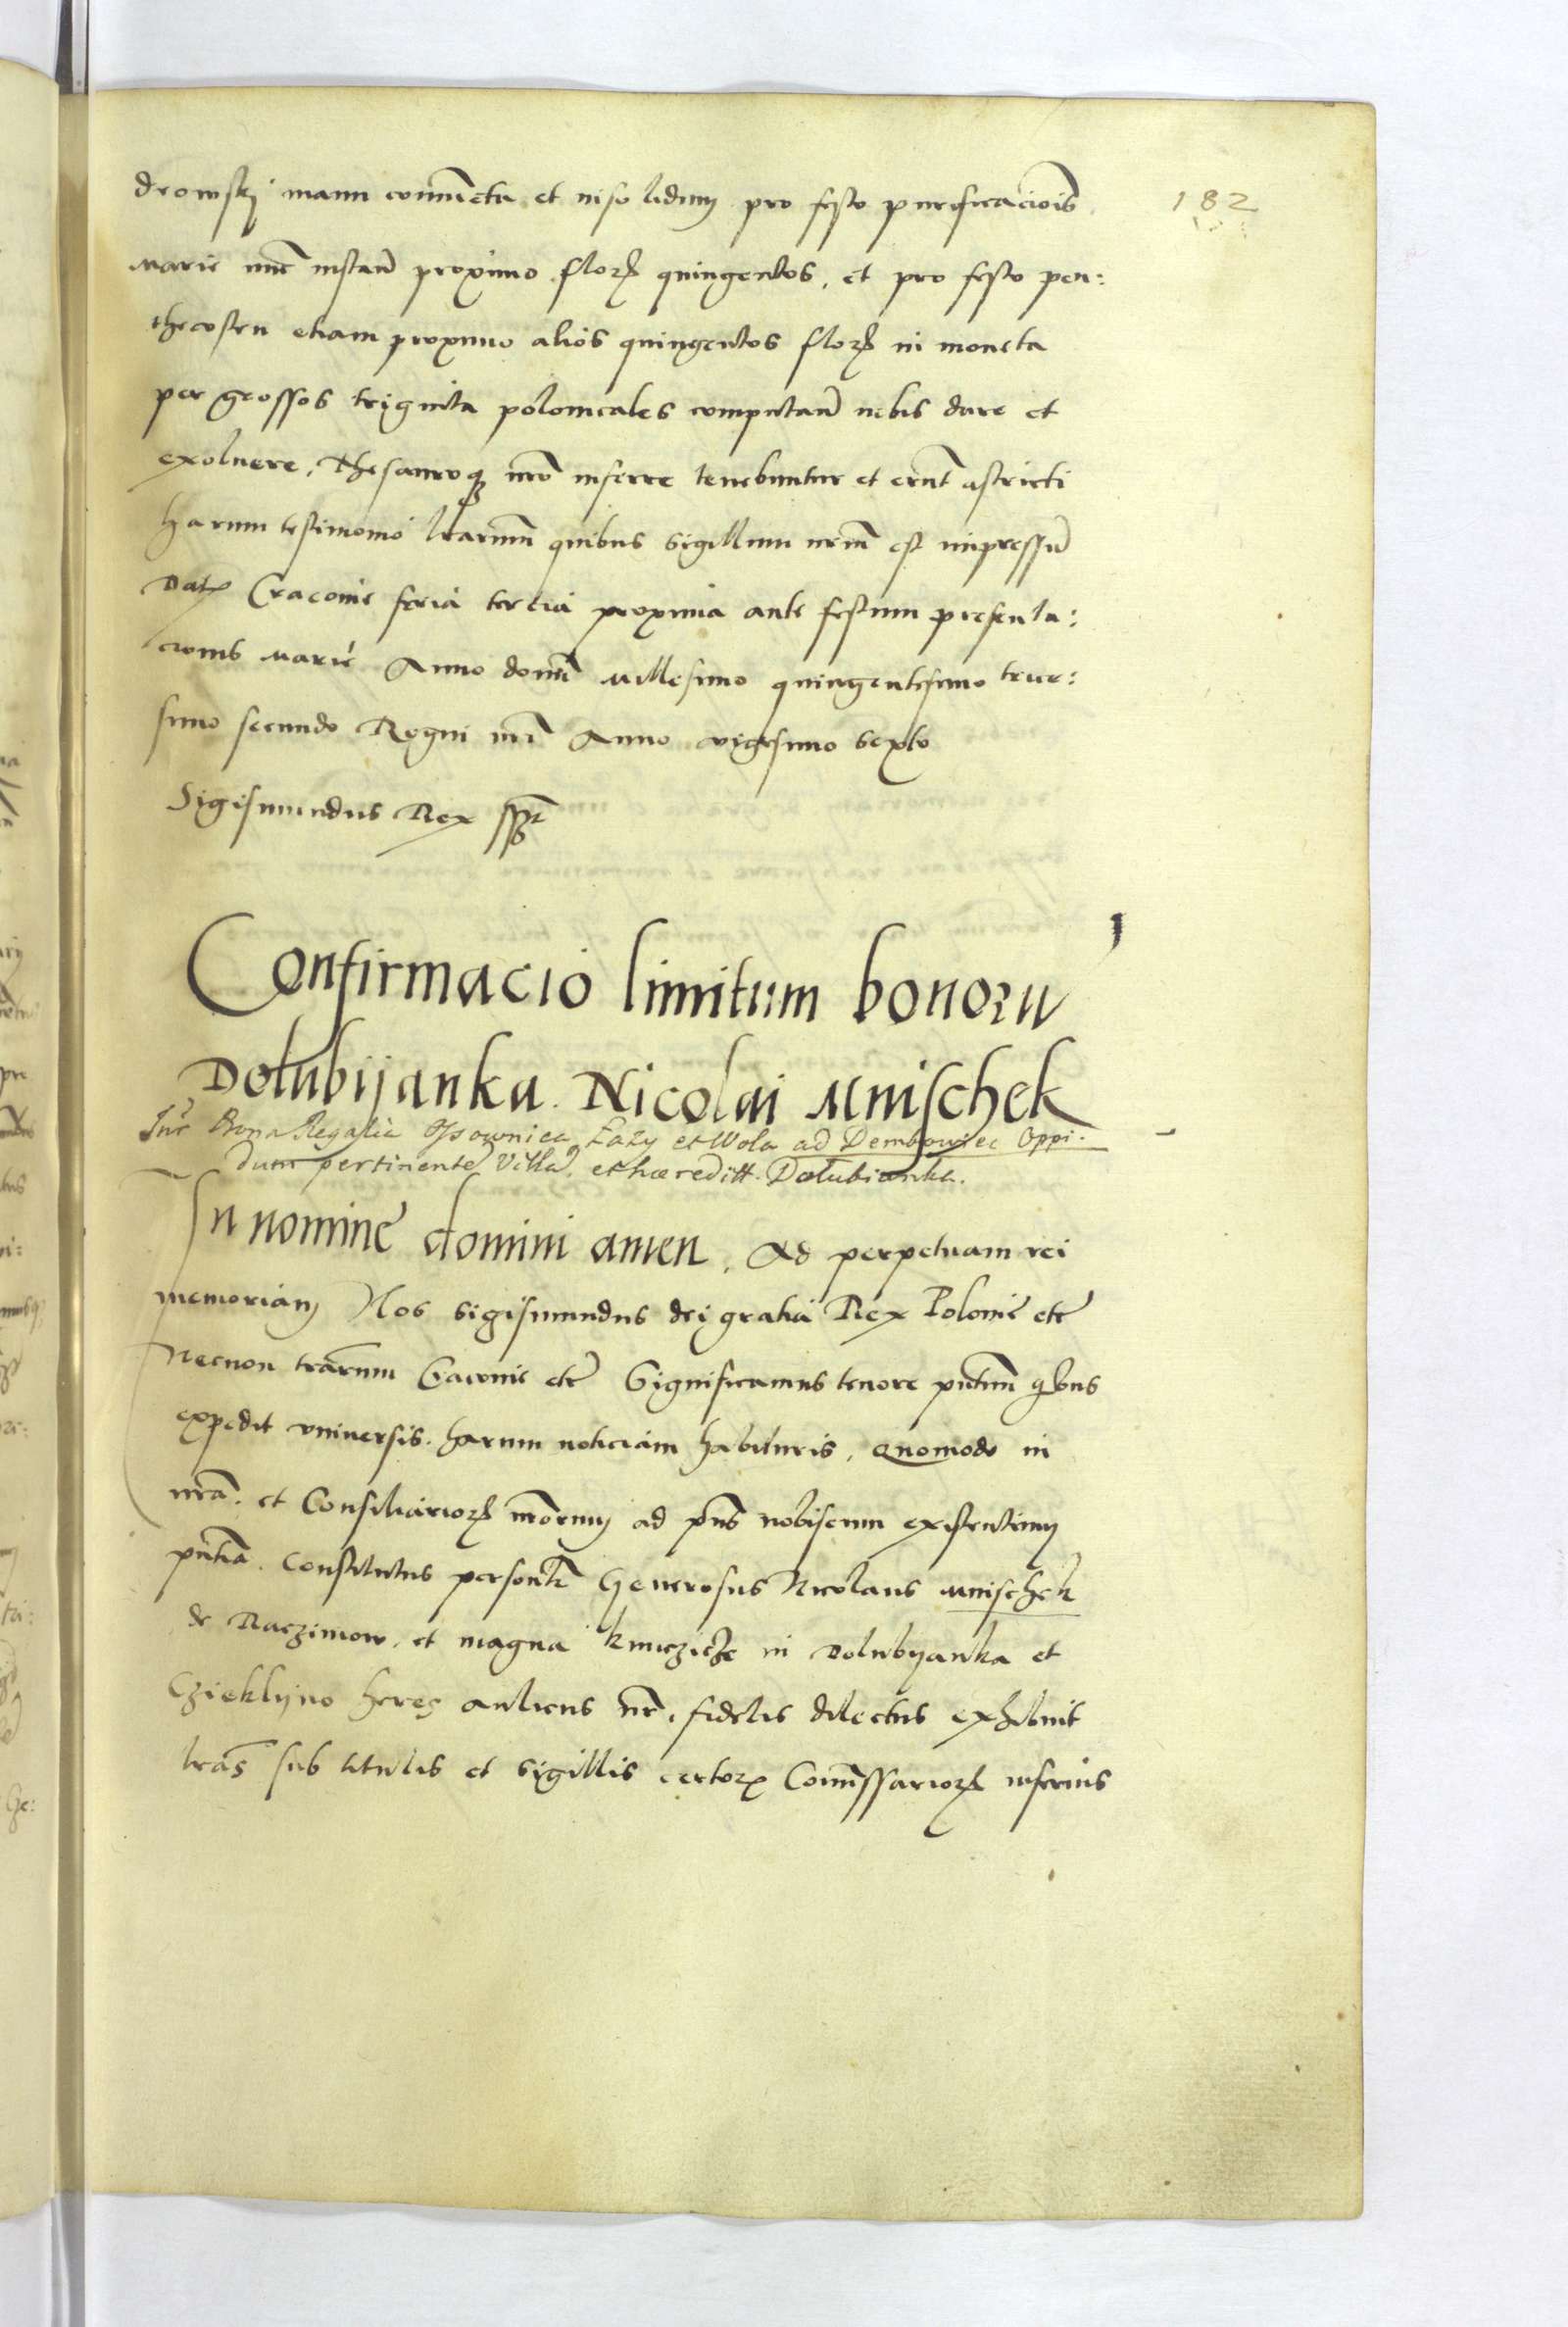 182
drowskj manu coniuncta et insolidum pro festo purificacionis
Marie nunc instan proximo flor quingentos, et pro festo pen:
thecosten etiam proximo alios quingentos flor in moneta
per grossos triginta polonicales computan nobis dare et
exoluere, Thesauroq nro inferre tenebuntur et erunt astricti
harum testimonio lrarum quibus sigillum nrum est impressu
Dat Cracouie feria tercia proxima ante festum presenta:
cionis Marie Anno domi Millesimo quingentesimo trice:
simo secundo Regni nri Anno vigesimo sexto
Sigismundus Rex sspt
Confirmacio limitum bonoru
Dolubijanka Nicolai Mnischek
Int Bona Regalia Osownica Łazy et Wola ad Dembowiec Oppi-
dum pertinente Villa et hæreditt. Dołubianka.
In nomine domini amen, Ad perpetuam rei
memoriam Nos Sigismundus dei gratia Rex Polonie etc
Necnon trarum Cracouie etc Significamus tenore pntium qbus
expedit vniuersis harum noticiam habituris, Quomodo in
nra et Consiliarior nrorum ad pns nobiscum existentium
pntia Constitutus personlr Generosus Nicolaus Mnischek
de Raczimow et magna kunczicze in Dolubyanka et
Czieklyno heres aulicus nr fidelis dilectus exhibuit
lras sub titulis et sigillis certor Comissarior inferius